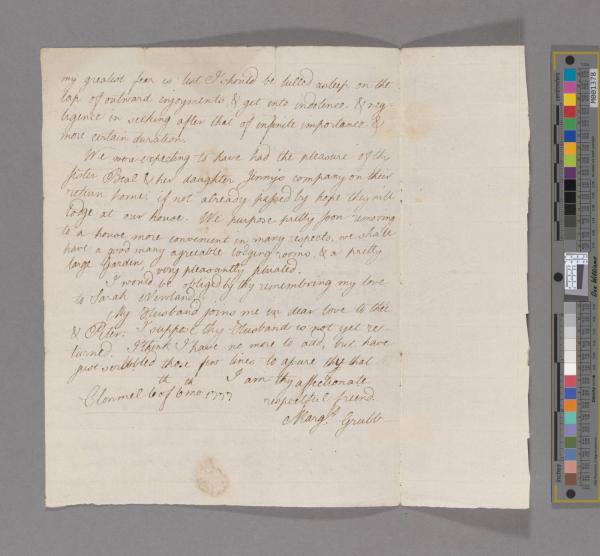 my greatest fear is lest I should be lulled asleep on the
lap of outward enjoyments, & get into indolence & neg-
ligence in seeking after that of infinite importance &
more certain duration.
We were expecting to have had the pleasure of thy
sister Beal & her daughter Jenny's company on their
return home; if not already passed by hope they will
lodge at our house. We purpose pretty soon removing
to a house more convenient in many respects, we shall
have a good many agreeable lodging rooms, & a pretty
large Garden very pleasantly situated.
I would be obliged by thy remembring my love
to Sarah Newland.
My Husband joins me in dear love to thee
& Peter. I suppose thy Husband is not yet re-
turned. I think I have no more to add, but have
just scribbled those few lines to assure thee that
I am thy affectionate
Clonmel 6th of 6th mo. 1777 respectful friend.
Margt. Grubb
M081378